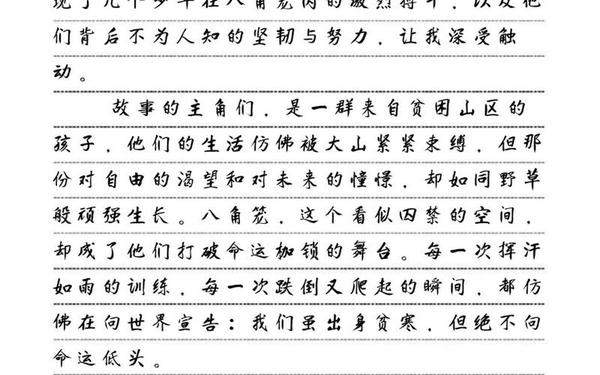 现了几个少年在八角笼内的激烈搏斗，以及他
们背后不为人知的坚韧与努力，让我深受触
动。
故事的主角们，是一群来自贫困山区的
孩子，他们的生活仿佛被大山紧紧束缚，但那
份对自由的渴望和对未来的憧憬，却如同野草
般顽强生长。八角笼，这个看似囚禁的空间，
却成了他们打破命运枷锁的舞台。每一次挥汗
如雨的训练，每一次跌倒又爬起的瞬间，都仿
佛在向世界宣告：我们虽出身贫寒，但绝不向
命运低头。